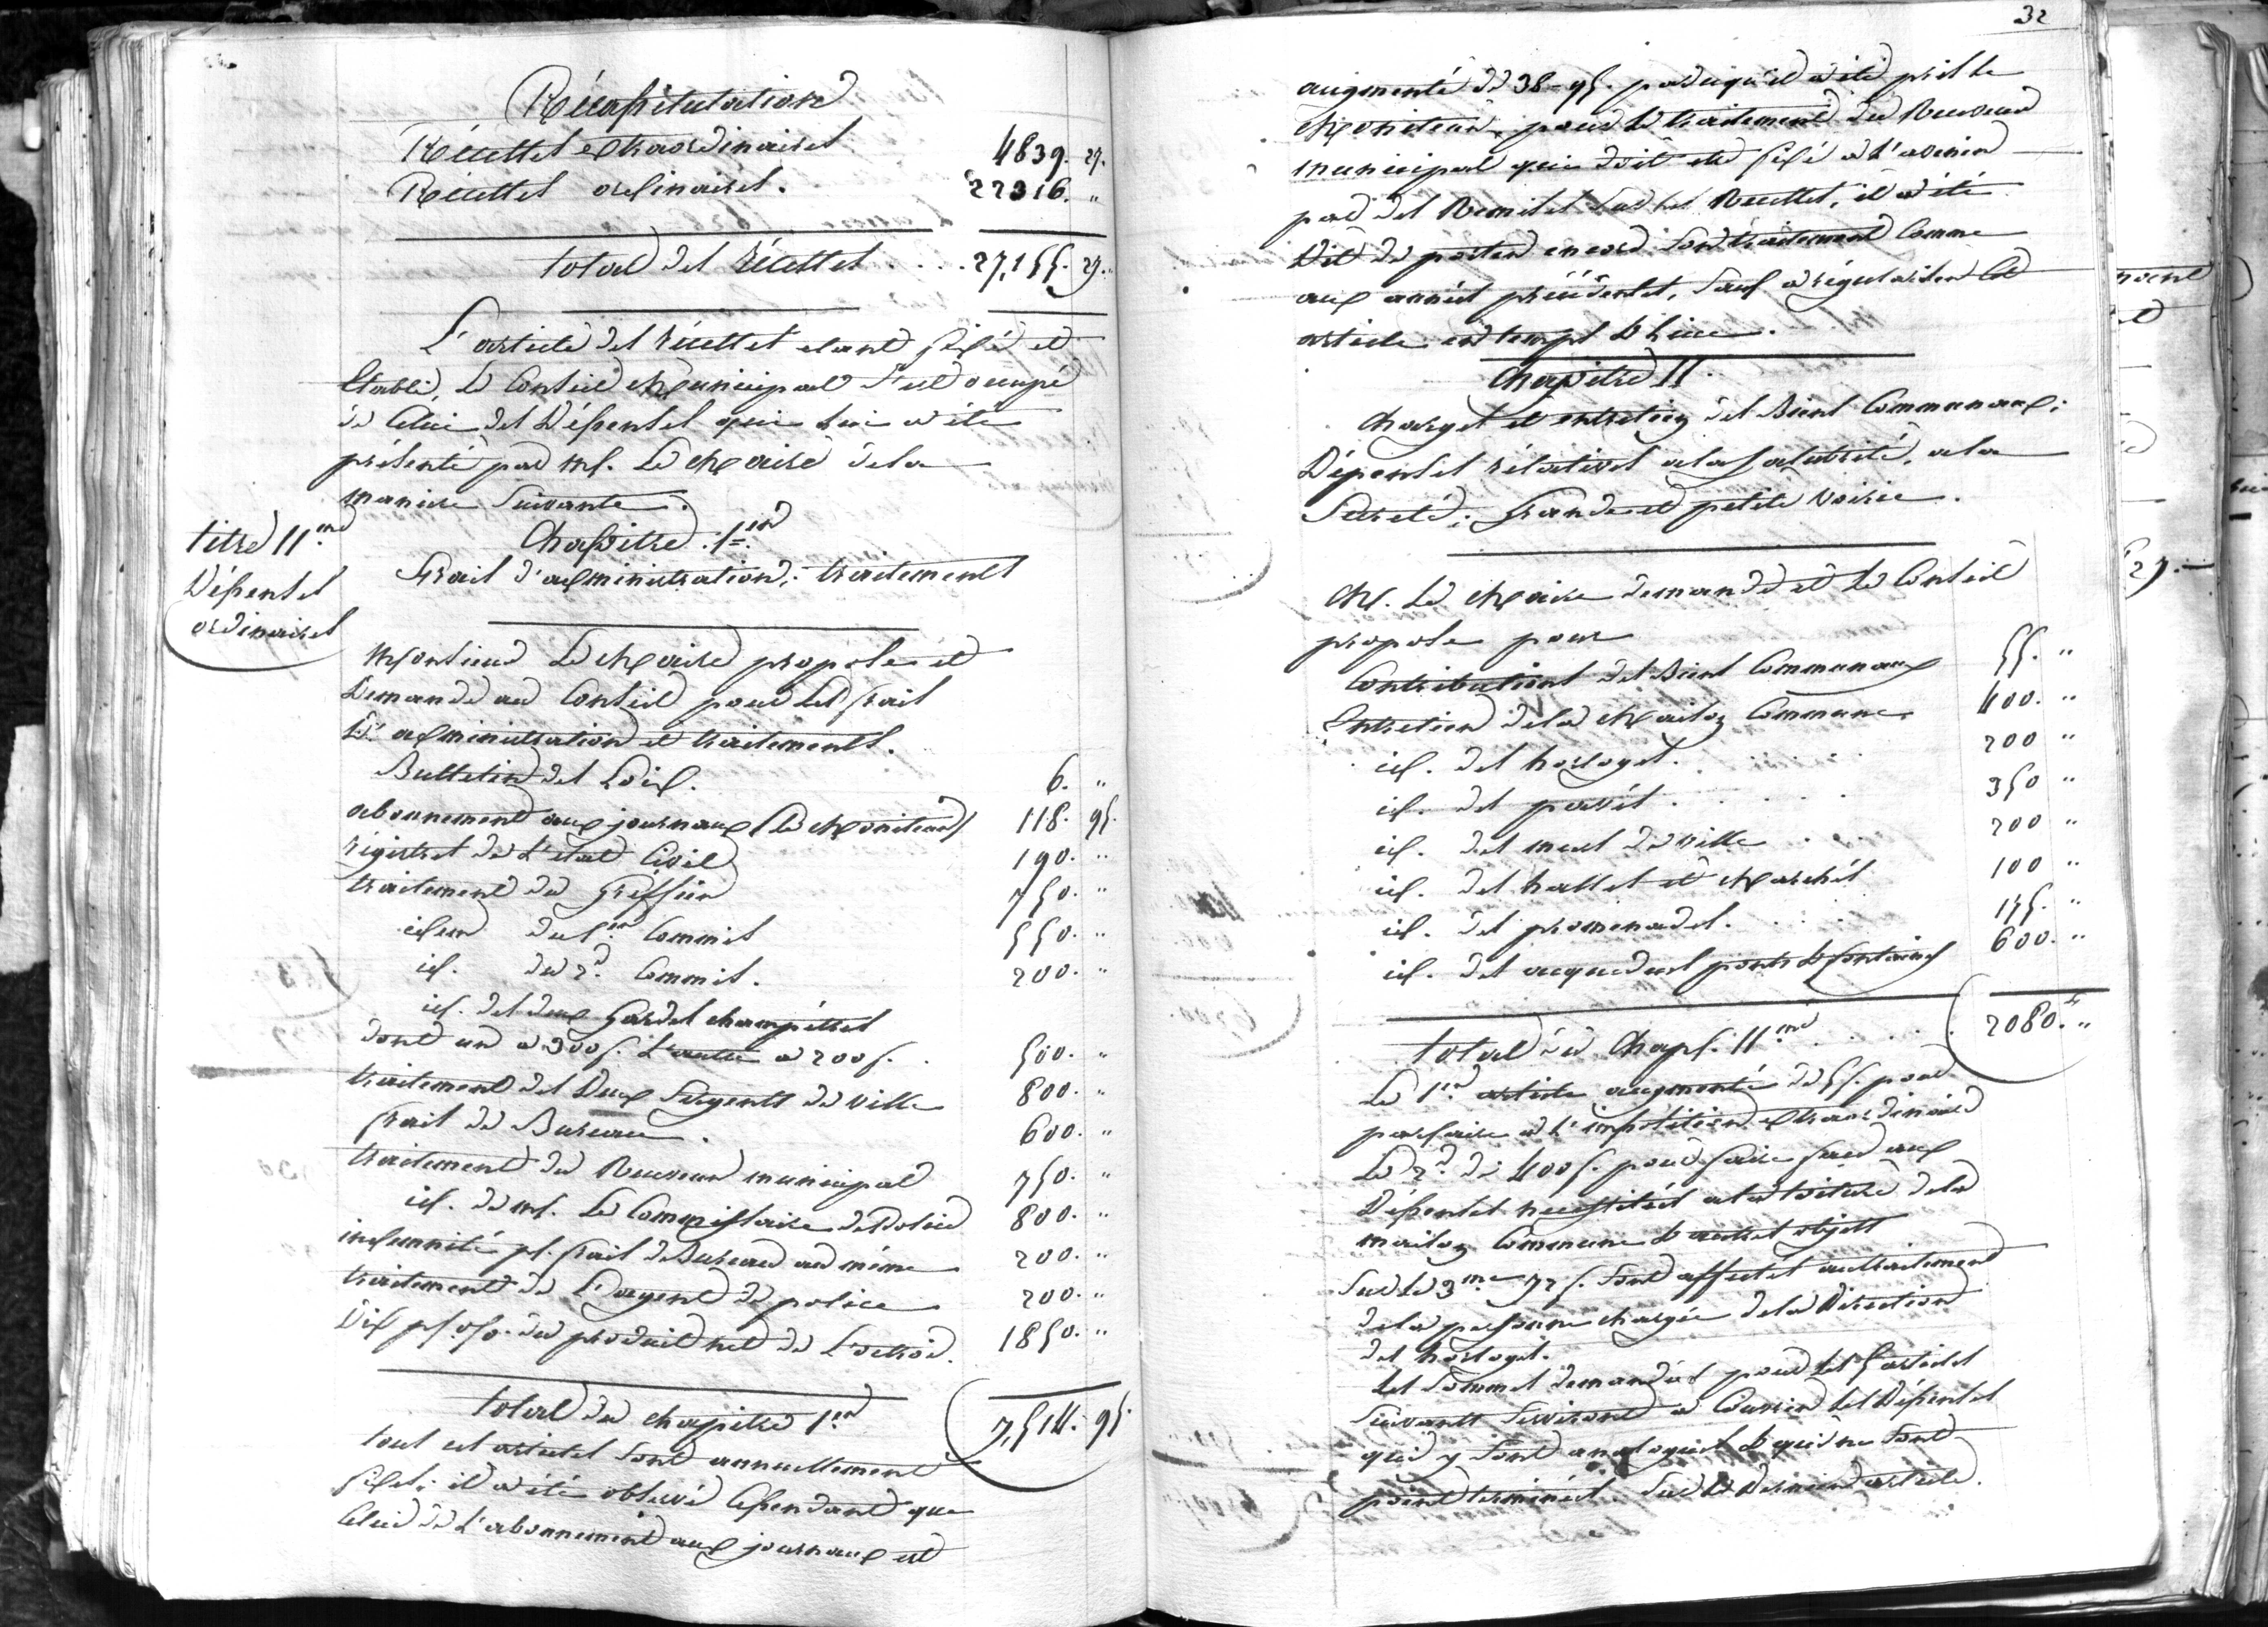 Récapitulation
Récettes extraordinaires 4839. 29.
Récettes ordinaires. 22316. "
total des récettes . . . . 27,155. 29.
L'article des récettes etant fixé et
Etabli, Le Conseil Municipal s'est occupé
de Celui des Dépenses qui lui a été
présenté par Mr. Le Maire de la
maniere Suivante.
titre 11.me
Dépenses
ordinaires
Chapitre 1.er
Frais d'administration, traitements
Monsieur Le Maire propose et
Demande au Conseil pour les frais
D'administration et traitements.
Bulletin des Loix. 6. "
abonnement aux journaux (Le Moniteur) 118. 95.
régistres de L'etat Civil 190. "
traitement du Greffier 750. "
idem du 1.er Commis 550. "
id. du 2.d Commis. 200. "
id. des deux Gardes champétres
dont un a 300 f. L'autre a 200 f. . 500. "
traitement des Deux Sergents de ville 800. "
frais de Bureau. 600. "
traitement du Receveur municipal 750. "
id. de Mr. Le Commissaire de Police 800. "
indemnité pr. frais de Bureau au même 200. "
traitement de L'agent de police 200. "
Dix pr. 0/0. du produit net de L'octroi. 1850. "
total du chapitre 1.er 7,514. 95
tous ces articles sont annuellement
fixes; il a été observé Cependant que
Celui de L'abonnement aux journaux est
32
augmenté de 38-95. parcequ'il a été pris le
Moniteur, pour Le traitement du Receveur
municipal qui doit etre fixé a L'avenir
par des Remises sur les Recettes, il a été
Dit de porter encore son traitement Comme
aux années précédentes, sauf a régulariser Cet
article en temps & lieu.
Chapitre 11.
Charges et entretien des Biens Communaux;
Dépenses rélatives a la salubrité, a la
Sureté; Grande et petite voirie.
M. Le Maire demande et Le Conseil
propose pour
Contributions des Biens Communaux 55. "
Entretien de la Maison Commune 400. "
id. des horloges. 200 "
id. des pavés . . . . . 350 "
id. des murs de ville . 200 "
id. des halles et Marchés 100 "
id. des promenades. . . . 175. "
id. des aqueducs ponts & fontaines 600. "
total du Chap. 11.me . . . . . 2080.f "
Le 1.er article augmenté de 5 f. pour
parfaire a L'imposition extraordinaire
Le 2.d de 400 f. pour faire face aux
Dépenses necessitées a la toiture de la
maison Commune & autres objets
Sur Le 3.me 72 f. sont affectés au traitement
de la personne chargée de la Direction
des horloges.
Les Sommes demandées pour les 5 articles
suivants serviront a Couvrir les Dépenses
qui y sont analogues & qui ne sont
point terminées. Sur Le Dernier article.